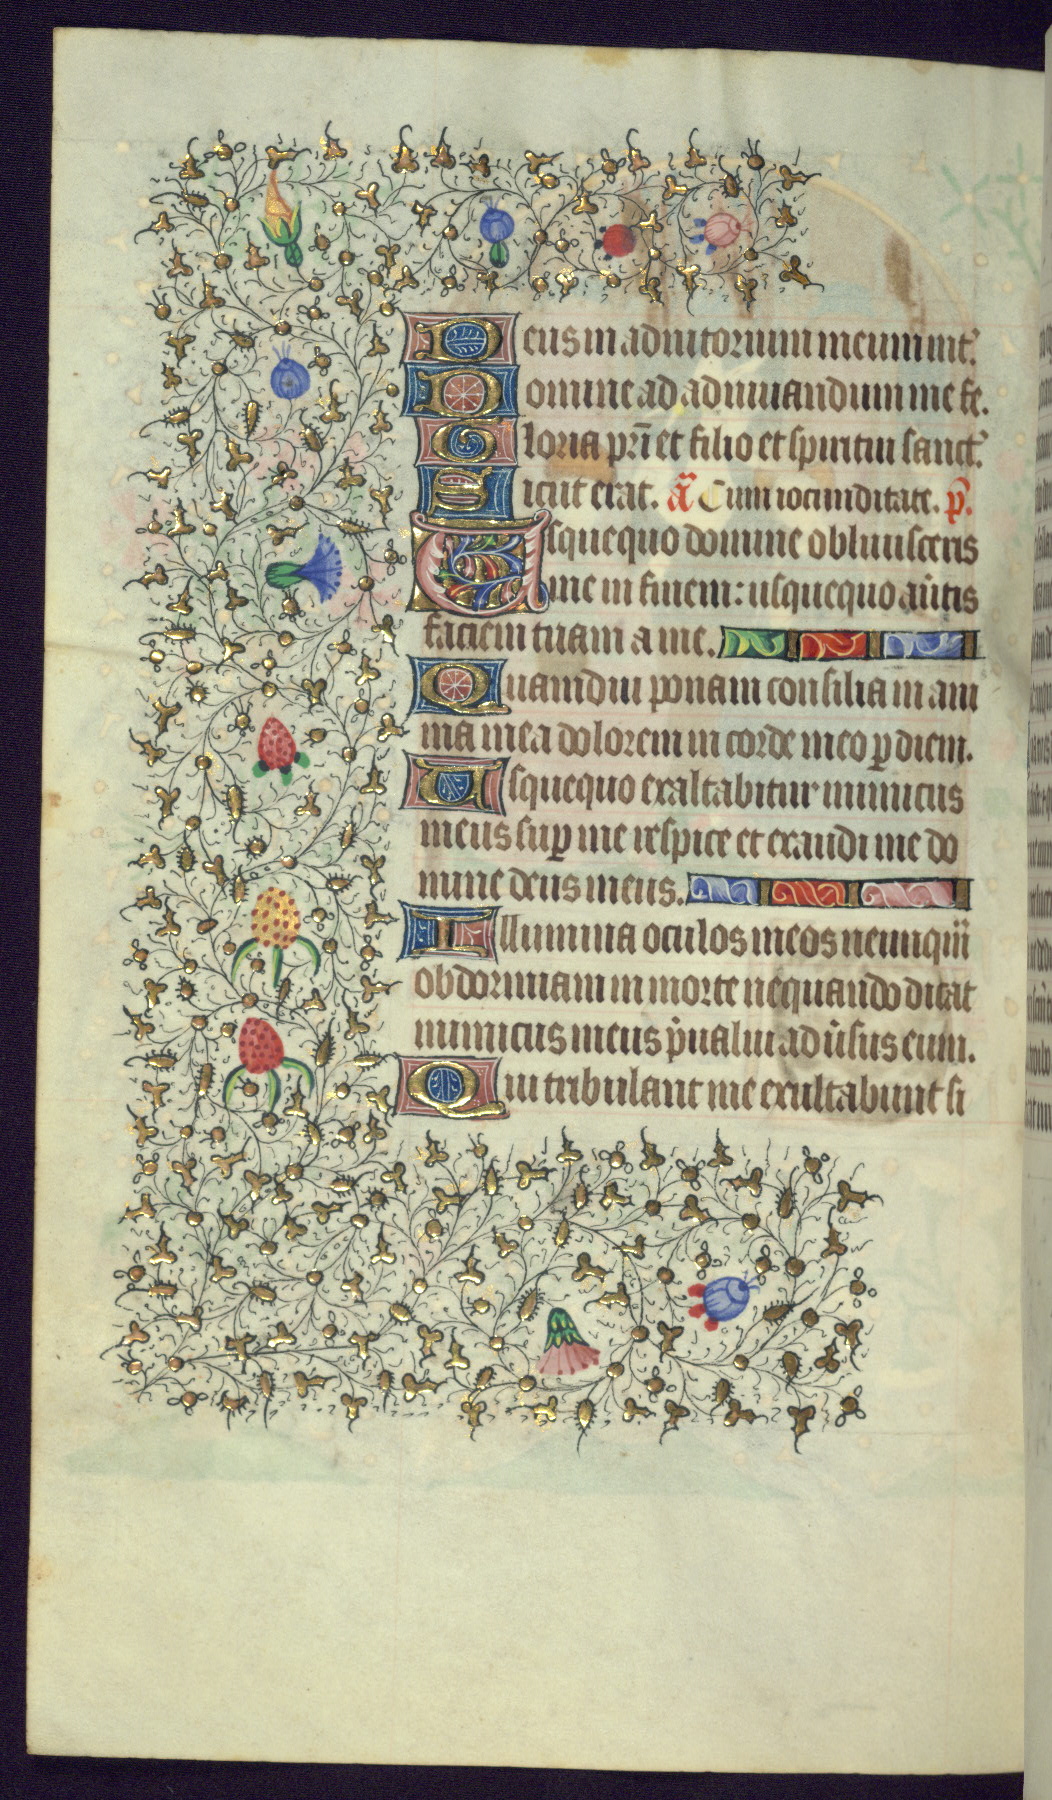 Deus in adiutorium meum int᷒.
Domine ad adiuuandum me fe.
Gloria pr̄i et filio et spiritui sanct᷒.
Sicut erat. a᷒ Cum iocunditate. p̄s.
Usquequo domine obliuisceris
me in finem: usquequo au̾tis
faciem tuam a me.
Quamdiu ponam consilia in ani
ma mea dolorem in corde meo ꝑ diem.
Usquequo exaltabitur inimicus
meus suꝑ me respice et exaudi me do
mine deus meus.
Illumina oculos meos ne umqu̅
obdormiam in morte nequando dicat
inimicus meus p̄ualui adu̾sus eum.
Qui tribulant me exultabunt si